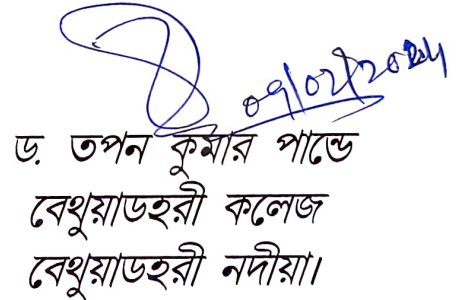 09/02/2024
ড. তপন কুমার পান্ডে
বেথুয়াডহরী কলেজ
বেথুয়াডহরী নদীয়া।